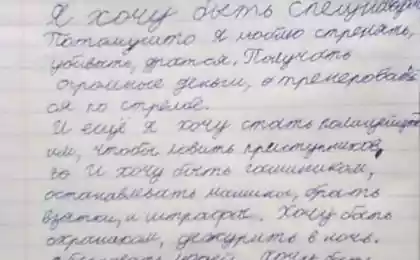 Я хочу быть спецназом
Потомушто я люблю стрелять,
убивать, дратся. Получать
огромные деньги, а тренероват
ся по стрелбе.
И ещё я хочу стать полицейск
им, чтобы ловить преступников,
И хочу быть гаишником,
останавливать машины, брать
взятки, и штрафы. Хочу быть
охранаком, дежурить в ночь.
людей. Хочу быть